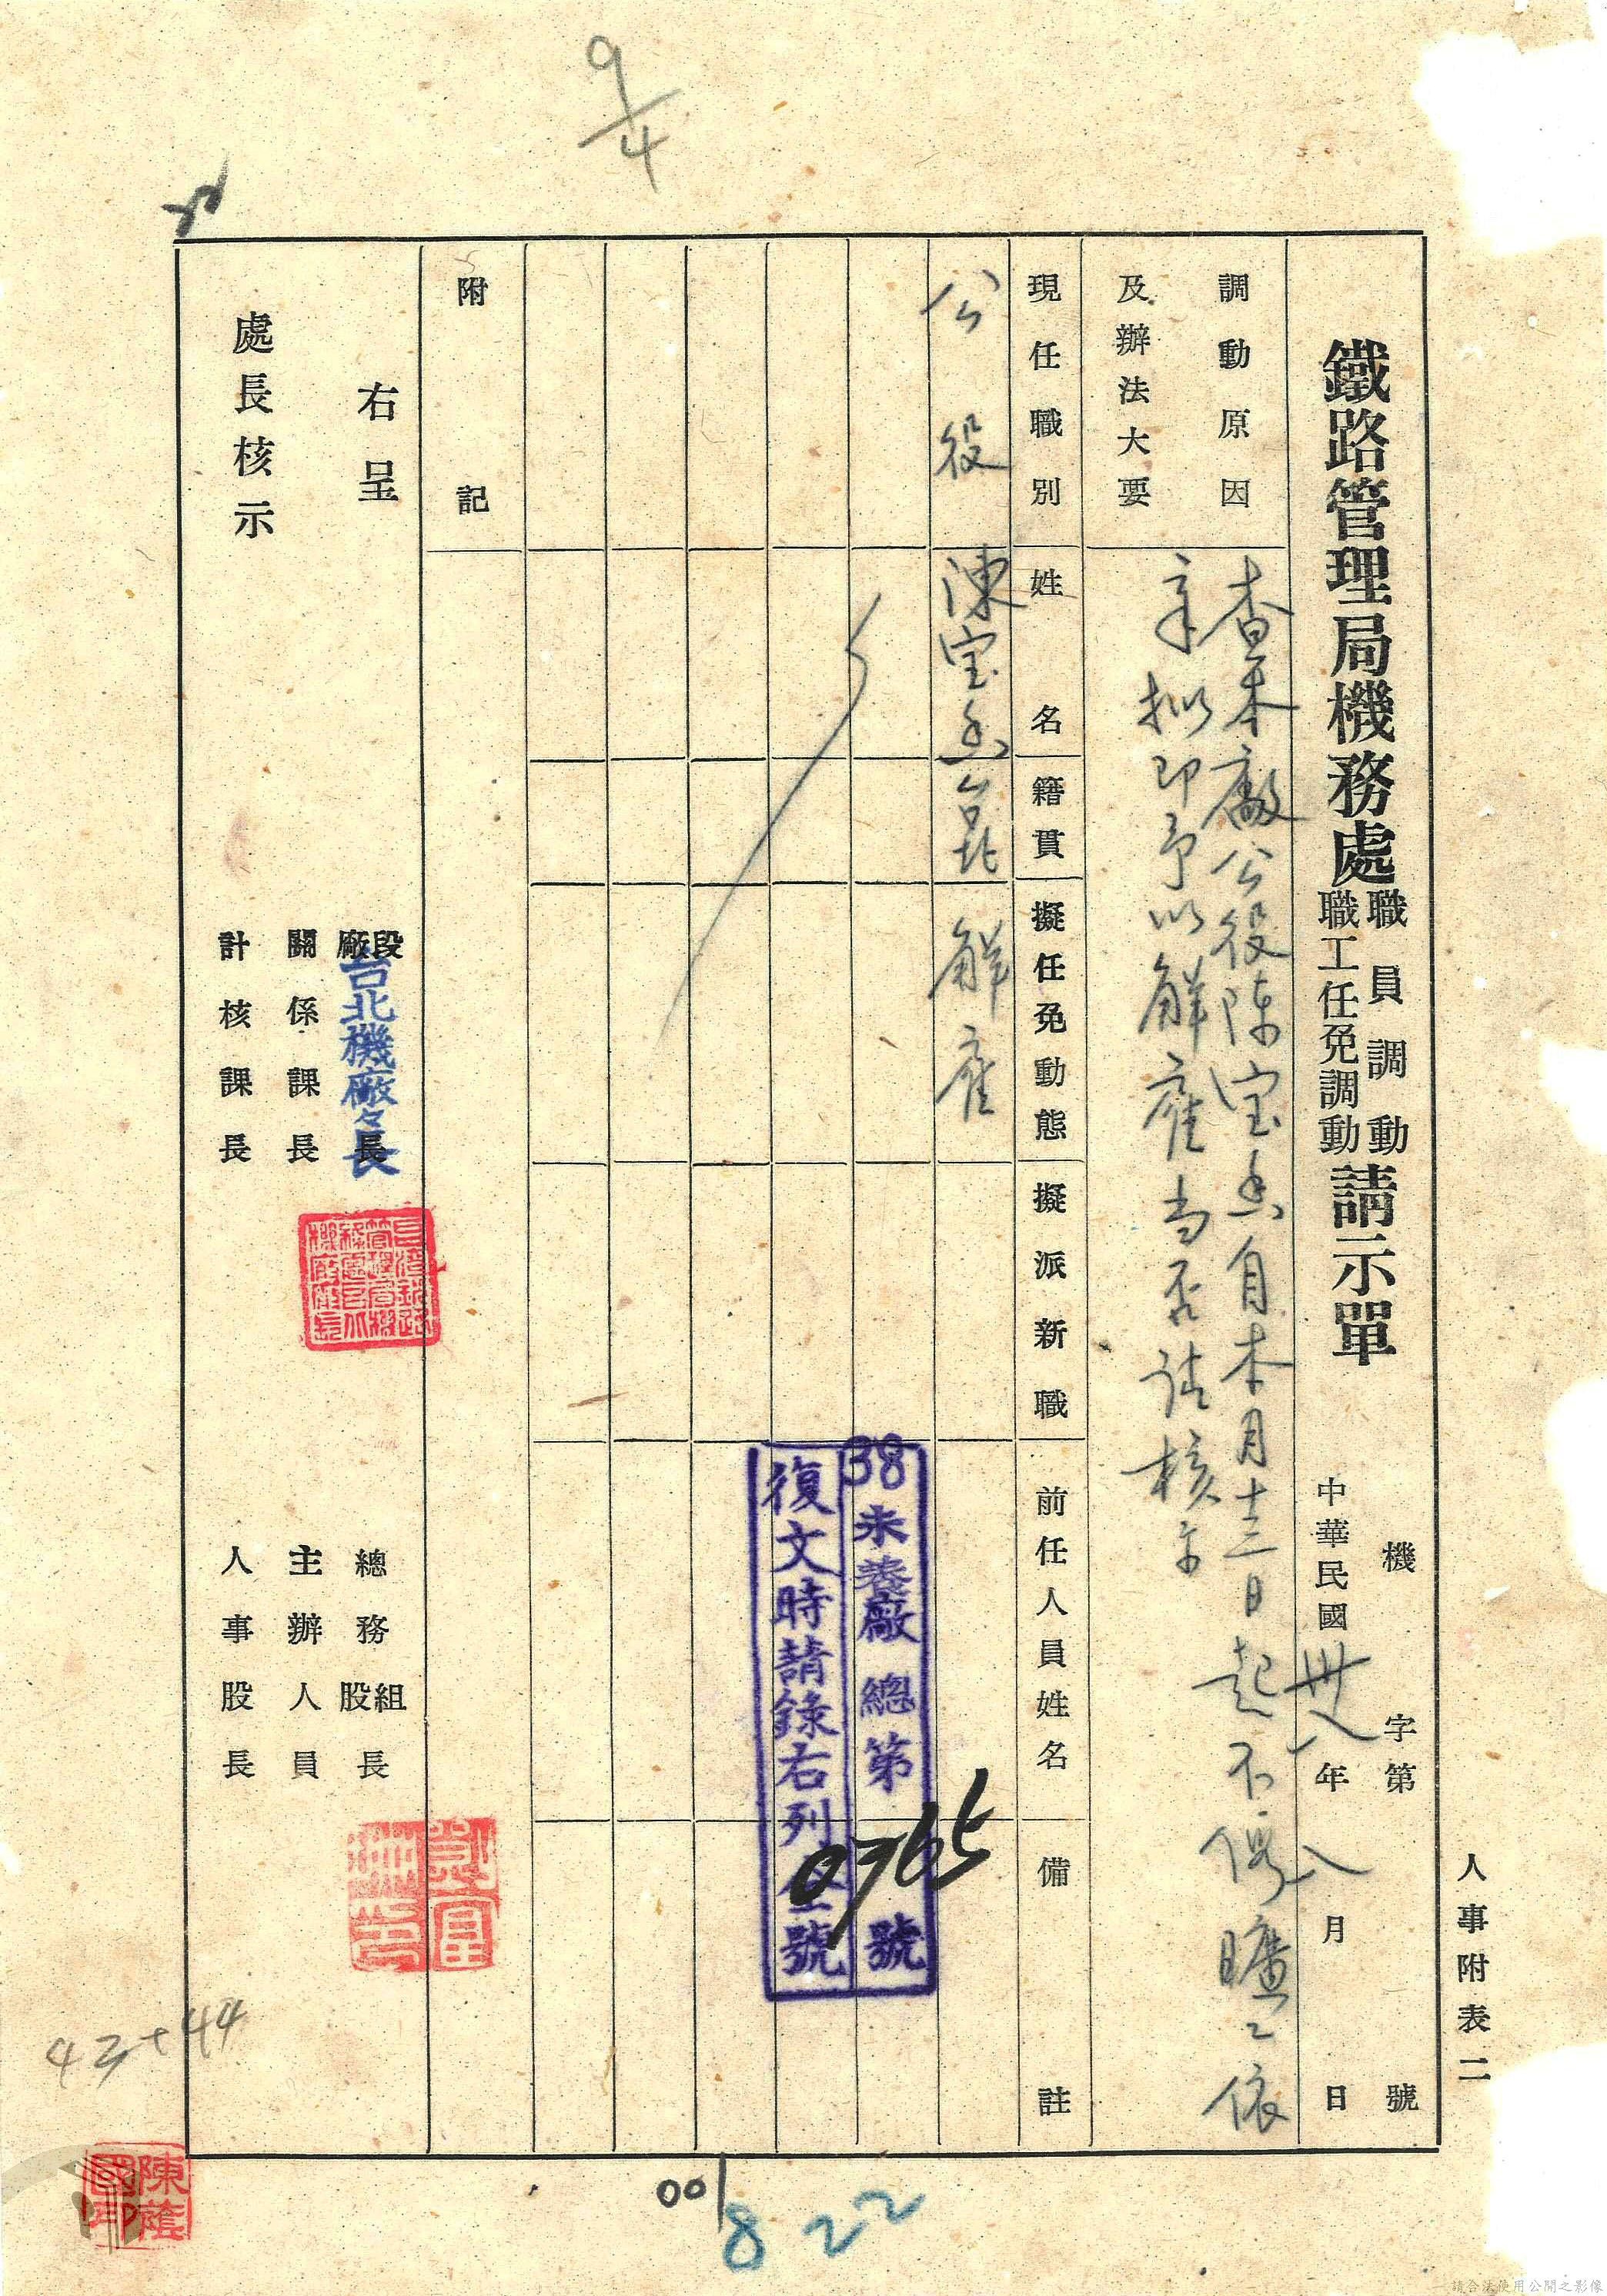 人事附表二
機 字第 號
鐵路管理局機務處職員調動職工任免調動請示單 中華民國卅八年八月 日
調動原因
及辦法大要
查本廠公役陳宝玉自本月十三日起不假曠工依
章拟即予以解雇当否請核示
現任職別 姓名 籍貫 擬任免動態 擬派新職 前任人員姓名 備註
公役 陳宝玉 台北 解雇
38未養廠總第0765號
復文時請錄右列 號
附記
右呈
處長核示
廠段長 台北機廠々長
關係課長
計核課長
總務組股長
主辦人員
人事股長
9/4
43+44
001
8 22
陳蔭國印
請合法使用公開之影像